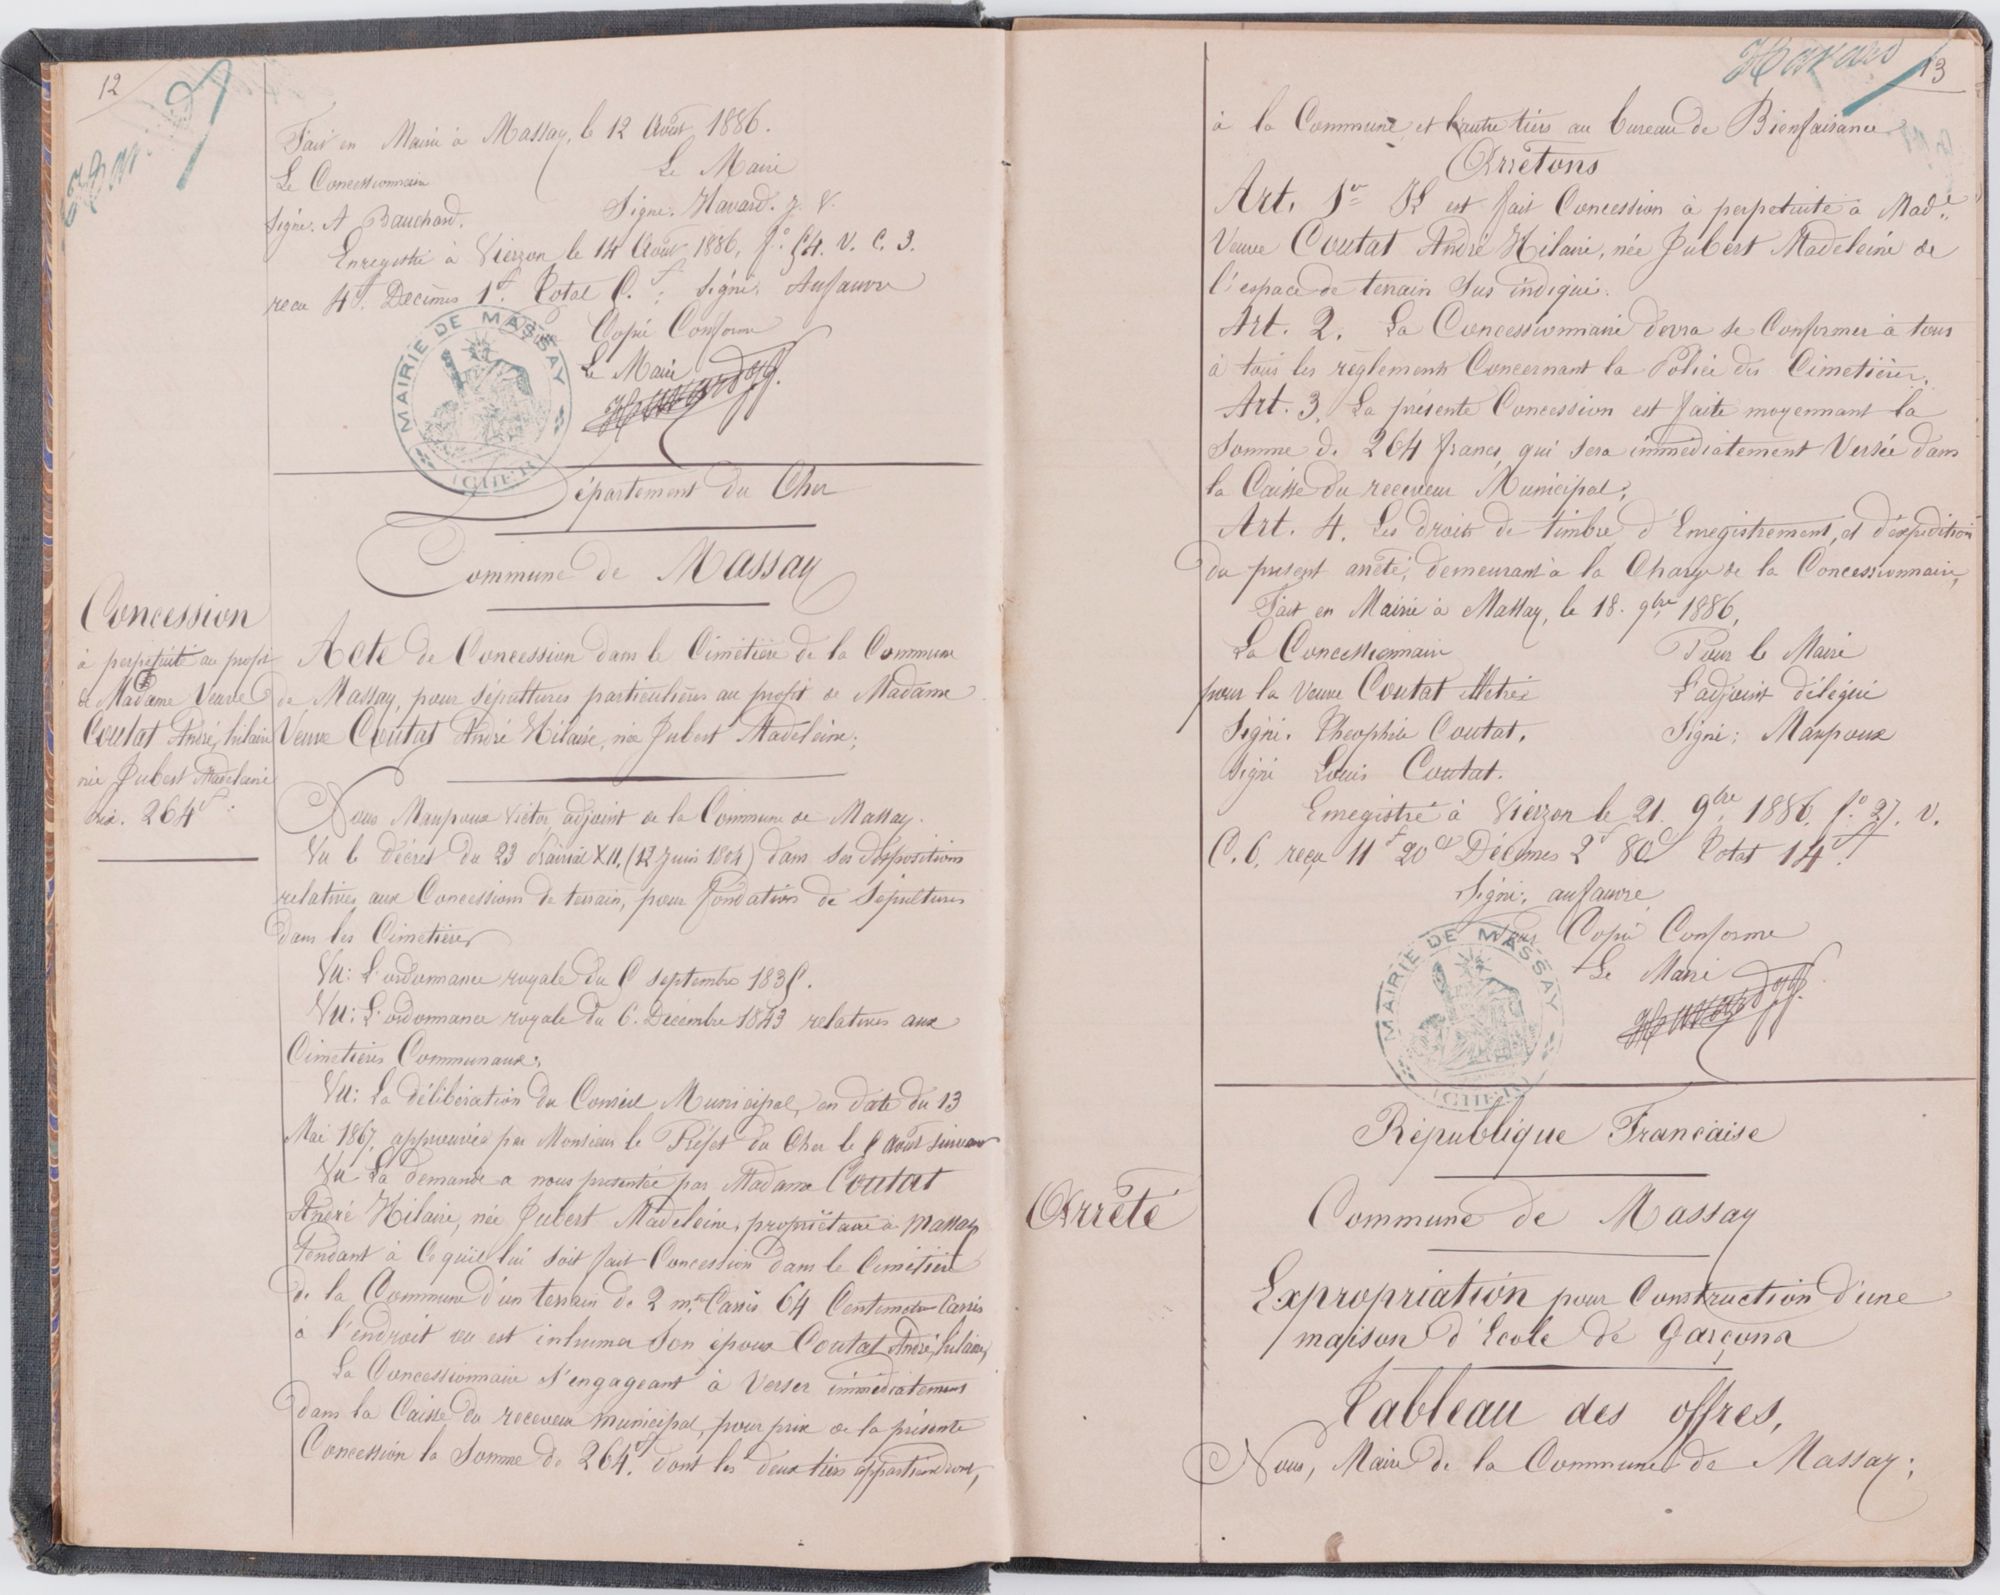 12
Fait en Mairie à Massay, le 12 Août 1886.
Le Concessionnaire
Le Maire
Signé. A Bauchard.
Signé. Havard. J. V.
Enregistré à Vierzon le 14 Août 1886, f° 54. V. C. 3.
recu 4f. Décimes 1f. Total 5f; Signé. Aufauvre
Pour Copie Conforme
Le Maire
Havard
MAIRIE DE MASSAY
(CHER)
Département du Cher
Commune de Massay
Concession
à perpétuité au profit
de Madame Veuve
Coutat André, hilaire
née Jubert Madeleine
prix. 264f.
Acte de Concession dans le Cimetière de la Commune
de Massay, pour sépultures particulières au profit de Madame
Veuve Coutat André Hilaire, née Jubert Madeleine;
Nous Maupoux Victor adjoint de la Commune de Massay.
Vu le décret du 23 prairial XII, (12 Juin 1804) dans ses dispositions
relatives aux Concessions de terrain, pour fondation de Sépultures
dans les Cimetières
Vu: L'ordonnance royale du 5 septembre 1835.
Vu: L'ordonnance royale du 6. Décembre 1843 relatives aux
Cimetières Communaux;
Vu: La délibération du Conseil Municipal, en date du 13
Mai 1867, approuvée par Monsieur le Préfet du Cher le 5 Août suivant
Vu La demande a nous présentée par Madame Coutat
André Hilaire, née Jubert Madeleine, propriétaire à Massay
tendant à Ce qu'il lui soit fait Concession dans le Cimetière
de la Commune d'un terrain de 2 m. Carrés 64 Centimètres Carrés
à l'endroit ou est inhumer Son époux Coutat André, hilaire,
La Concessionnaire S'engageant à Verser immédiatement
dans la Caisse du receveur municipal, pour prix de la présente
Concession la Somme de 264f. dont les deux tiers appartiendront,
Havard
13
à la Commune et l'autre tiers au bureau de Bienfaisance
Arrêtons
Art. 1er Il est fait Concession à perpétuité à Made
Veuve Coutat André Hilaire, née Jubert Madeleine de
l'espace de terrain Sus indiqué.
Art. 2. La Concessionnaire devra se Conformer à tous
à tous les règlements Concernant la Police des Cimetières.
Art. 3. La présente Concession est faite moyennant la
Somme de 264 francs, qui sera immédiatement Versée dans
la Caisse du receveur Municipal;
Art. 4. Les droits de timbre, d'Enregistrement, et d'expédition
du présent arrêté, demeurant à la Charge de la Concessionnaire,
Fait en Mairie à Massay, le 18. 9bre 1886,
La Concessionnaire
Pour le Maire
pour la Veuve Coutat
L'adjoint délégué
Signé. Théophile Coutat.
Signé; Maupoux
Signé Louis Coutat.
Enregistré à Vierzon le 21. 9bre 1886. f° 27. V.
C. 6. reçu 11f 20c Décimes 2f 80c Total 14f.
Signé; aufauvre
Pour Copie Conforme
Le Maire
Havard
MAIRIE DE MASSAY
(CHER)
République Française
Arrêté
Commune de Massay
Expropriation pour Construction d'une
maison d'Ecole de Garçons
Tableau des offres,
Nous, Maire de la Commune de Massay;